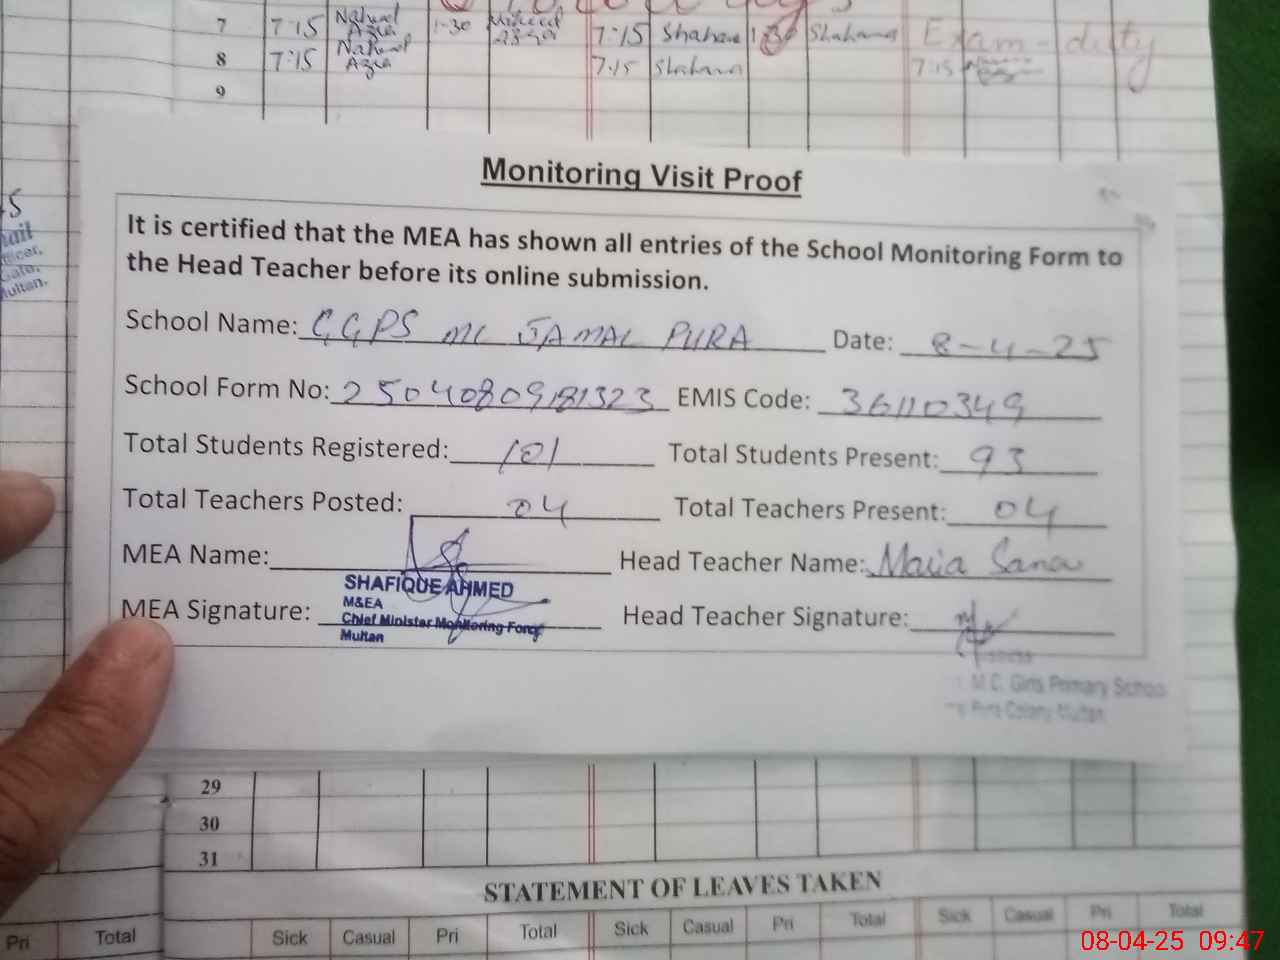 7 7:15 Naheed Azra 1-30 7:15 Shahana 1:30 Shahana Exam-duty
8 7:15 Naheed Azra 7:15 Shahana 7:15
9
Monitoring Visit Proof
It is certified that the MEA has shown all entries of the School Monitoring Form to
the Head Teacher before its online submission.
School Name: GGPS MC JAMAL PURA Date: 8-4-25
School Form No: 25040809181323 EMIS Code: 36110349
Total Students Registered: 101 Total Students Present: 93
Total Teachers Posted: 04 Total Teachers Present: 04
MEA Name: Head Teacher Name: Maria Sana
SHAFIQUE AHMED
M&EA
MEA Signature: Head Teacher Signature:
Chief Minister Monitoring Force
Multan
M.C. Girls Primary School
Pura Colony Multan
29
30
31
STATEMENT OF LEAVES TAKEN
Pri Total Sick Casual Pri Total Sick Casual Pri Total Sick Casual Pri Total
08-04-25 09:47